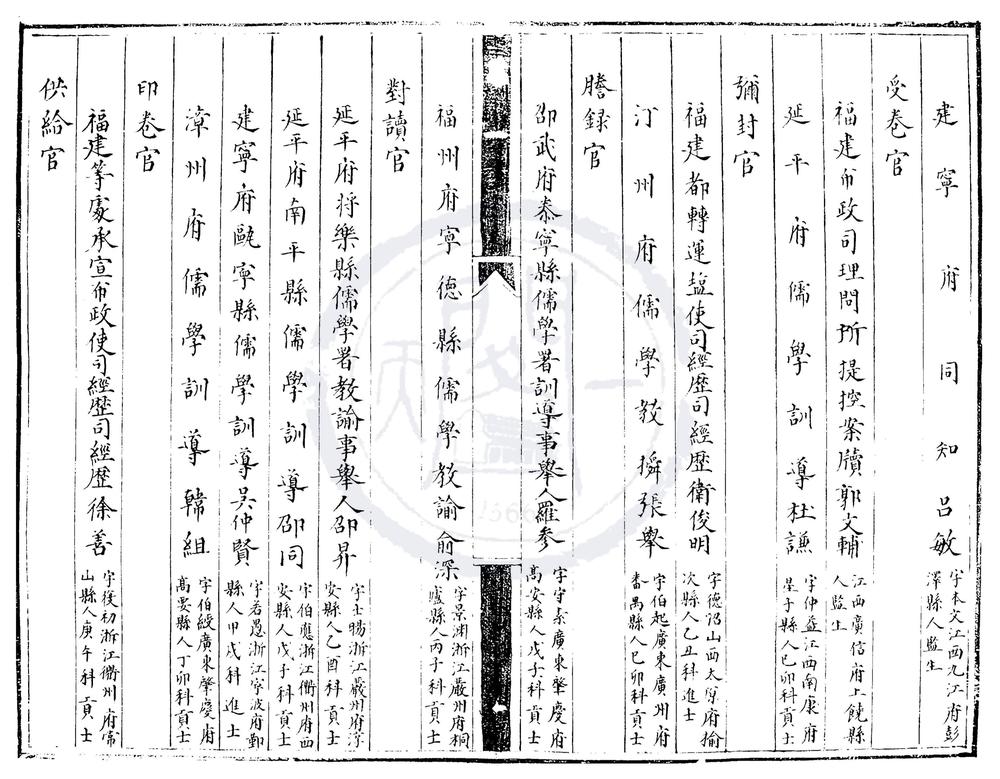 建寧府同知呂敏 字本文江西九江府彭
澤縣人監生
受卷官
福建布政司理問所提控案牘郭文輔 江西廣信府上饒縣
人監生
延平府儒學訓導杜謙 字仲益江西南康府
星子縣人己卯科貢士
彌封官
福建都轉運塩使司經歷司經歷衛俊明 字德㫤山西太原府榆
次縣人乙丑科進士
汀州府儒學教授張舉 字伯起廣東廣州府
番禺縣人己卯科貢士
謄録官
邵武府泰寧縣儒學署訓導事舉人羅參 字守素廣東肇慶府
高安縣人戊子科貢士
福州府寧德縣儒學教諭俞深 字景渊浙江嚴州府桐
廬縣人丙子科貢士
對讀官
延平府將樂縣儒學署教諭事舉人邵昇 字士暘浙江嚴州府淳
安縣人乙酉科貢士
延平府南平縣儒學訓導邵同 字伯應浙江衢州府西
安縣人戊子科貢士
建寧府甌寧縣儒學訓導吳仲賢 字若愚浙江寧波府鄞
縣人甲戌科進士
漳州府儒學訓導韓組 字伯綬廣東肇慶府
高要縣人丁卯科貢士
印卷官
福建等處承宣布政使司經歷司經歷徐善 字復初浙江衢州府常
山縣人庚午科貢士
供給官